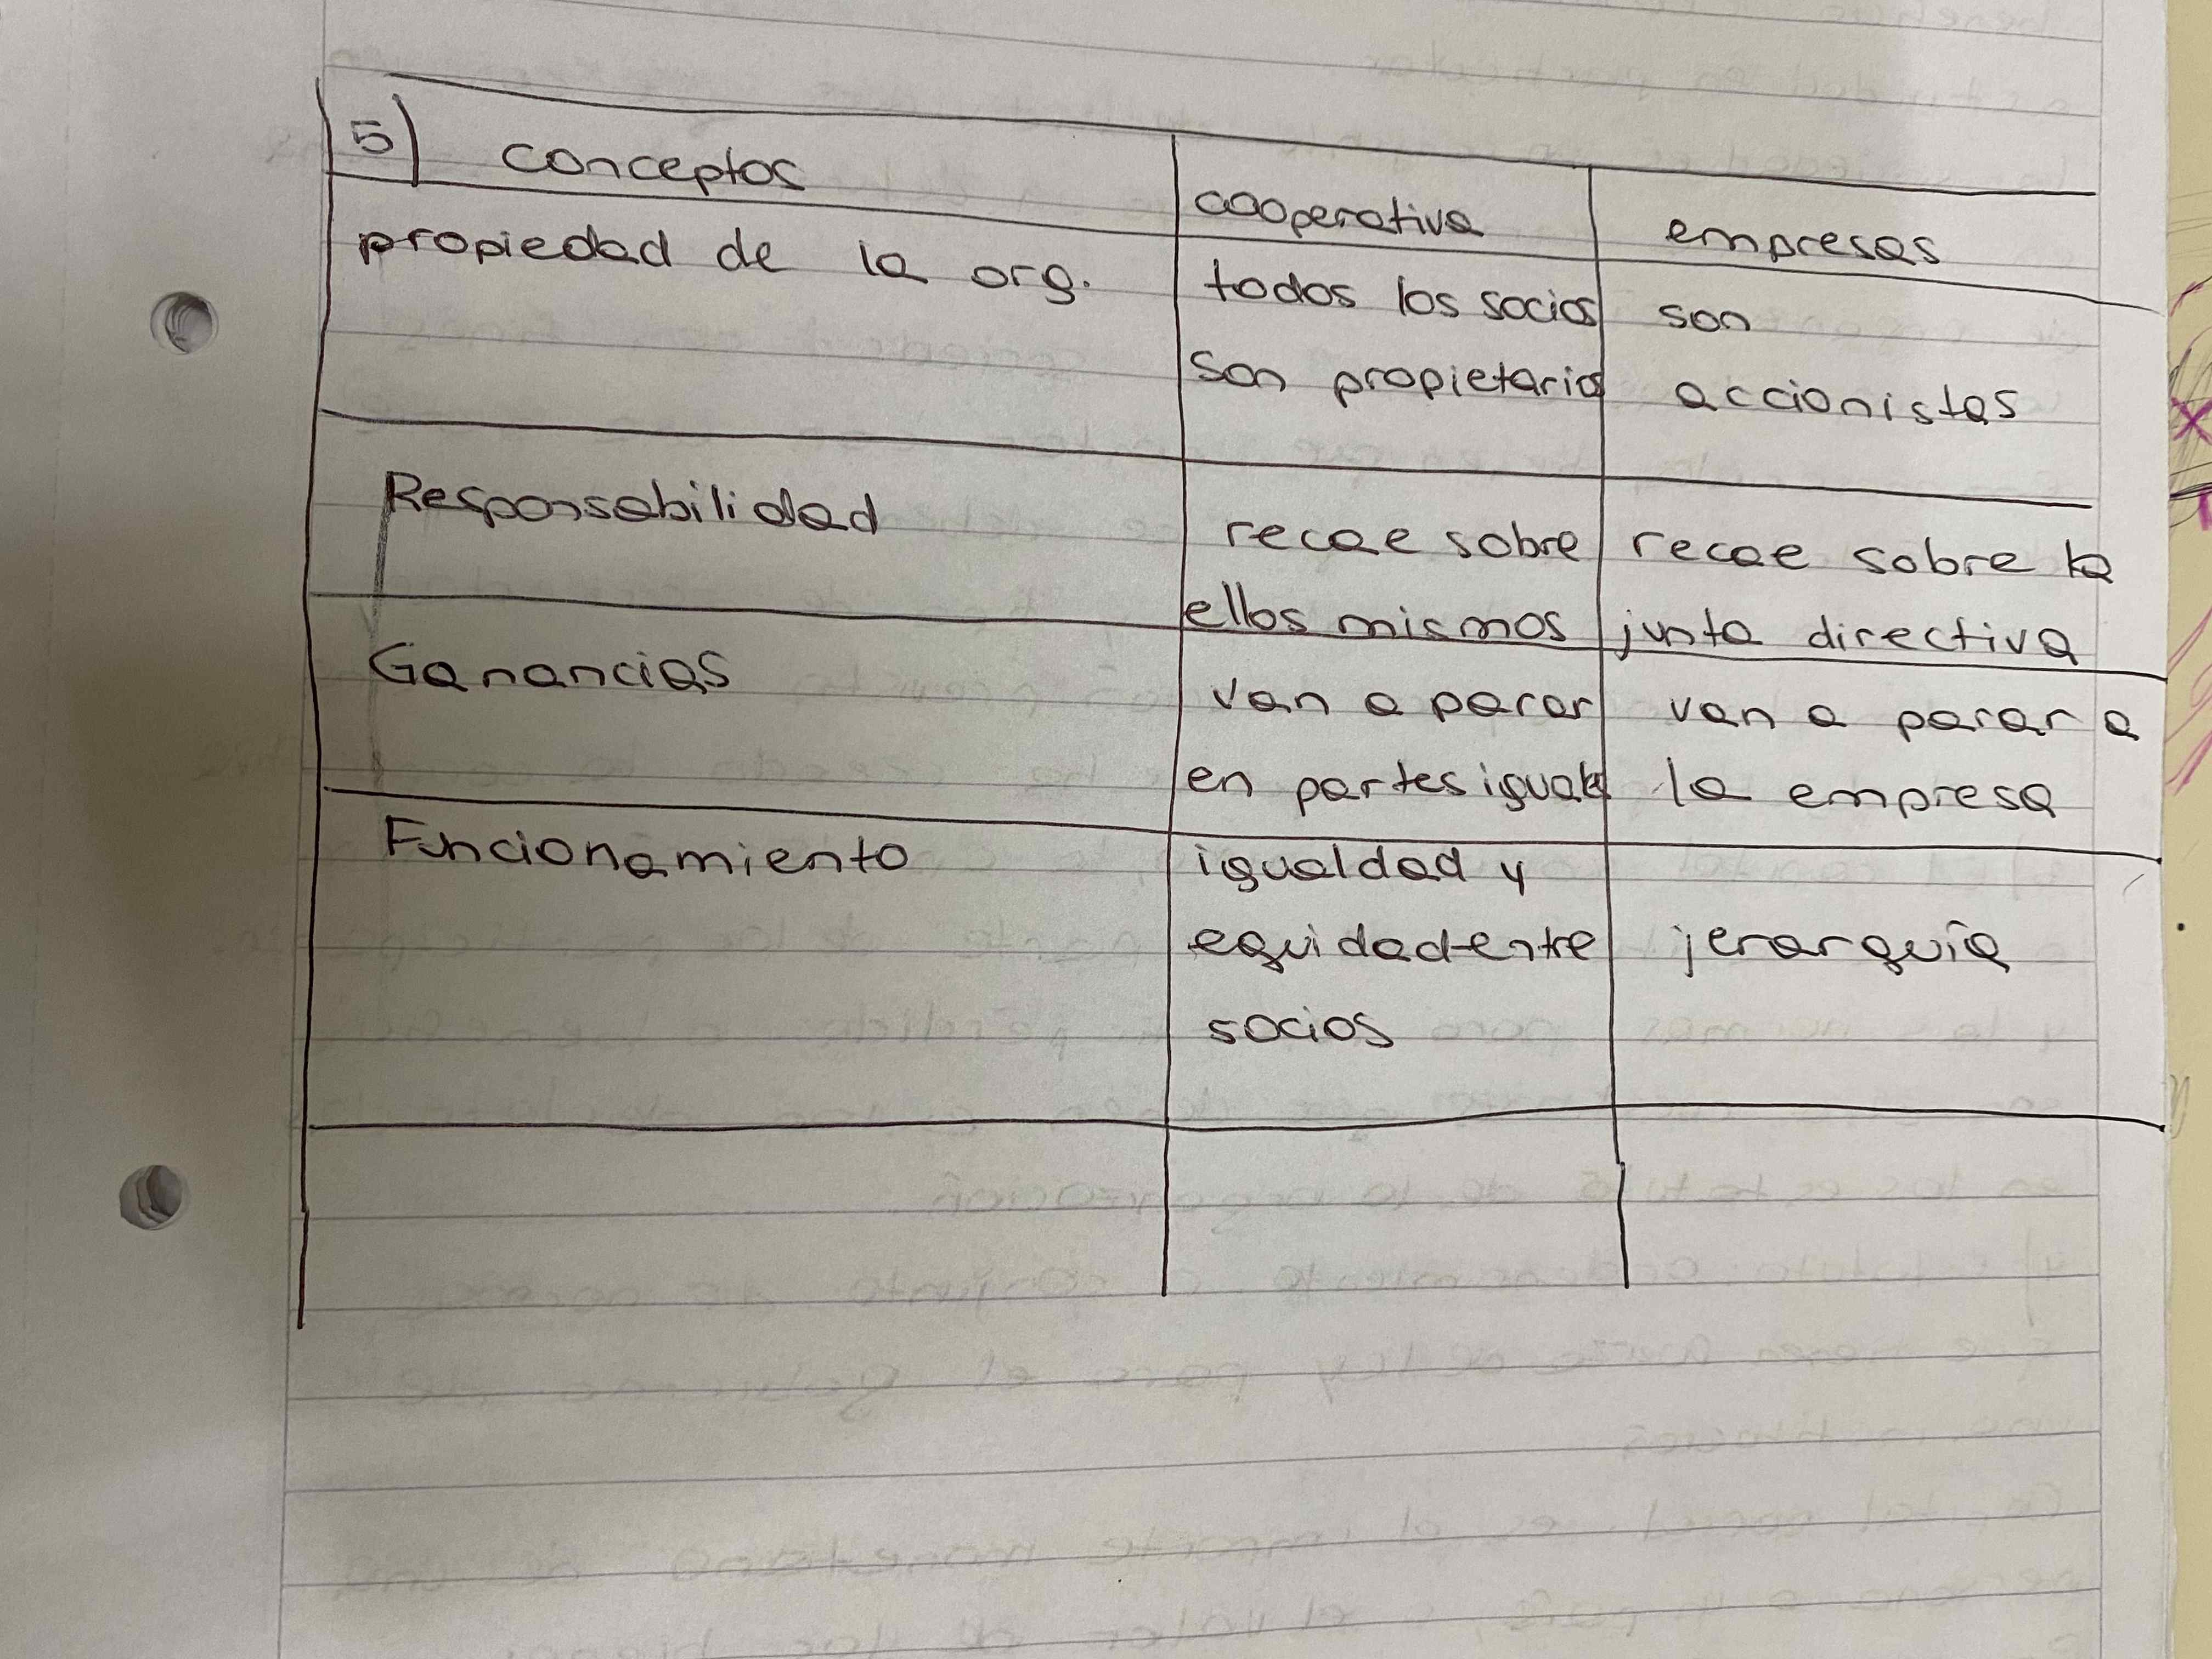 5) conceptos
cooperativa
empresas
propiedad de la org.
todos los socios
son propietarios
son
accionistas
Responsabilidad
recae sobre
ellos mismos
recae sobre la
junta directiva
Ganancias
van a parar
en partes iguales
van a parar a
la empresa
Funcionamiento
igualdad y
equidad entre
socios
jerarquía